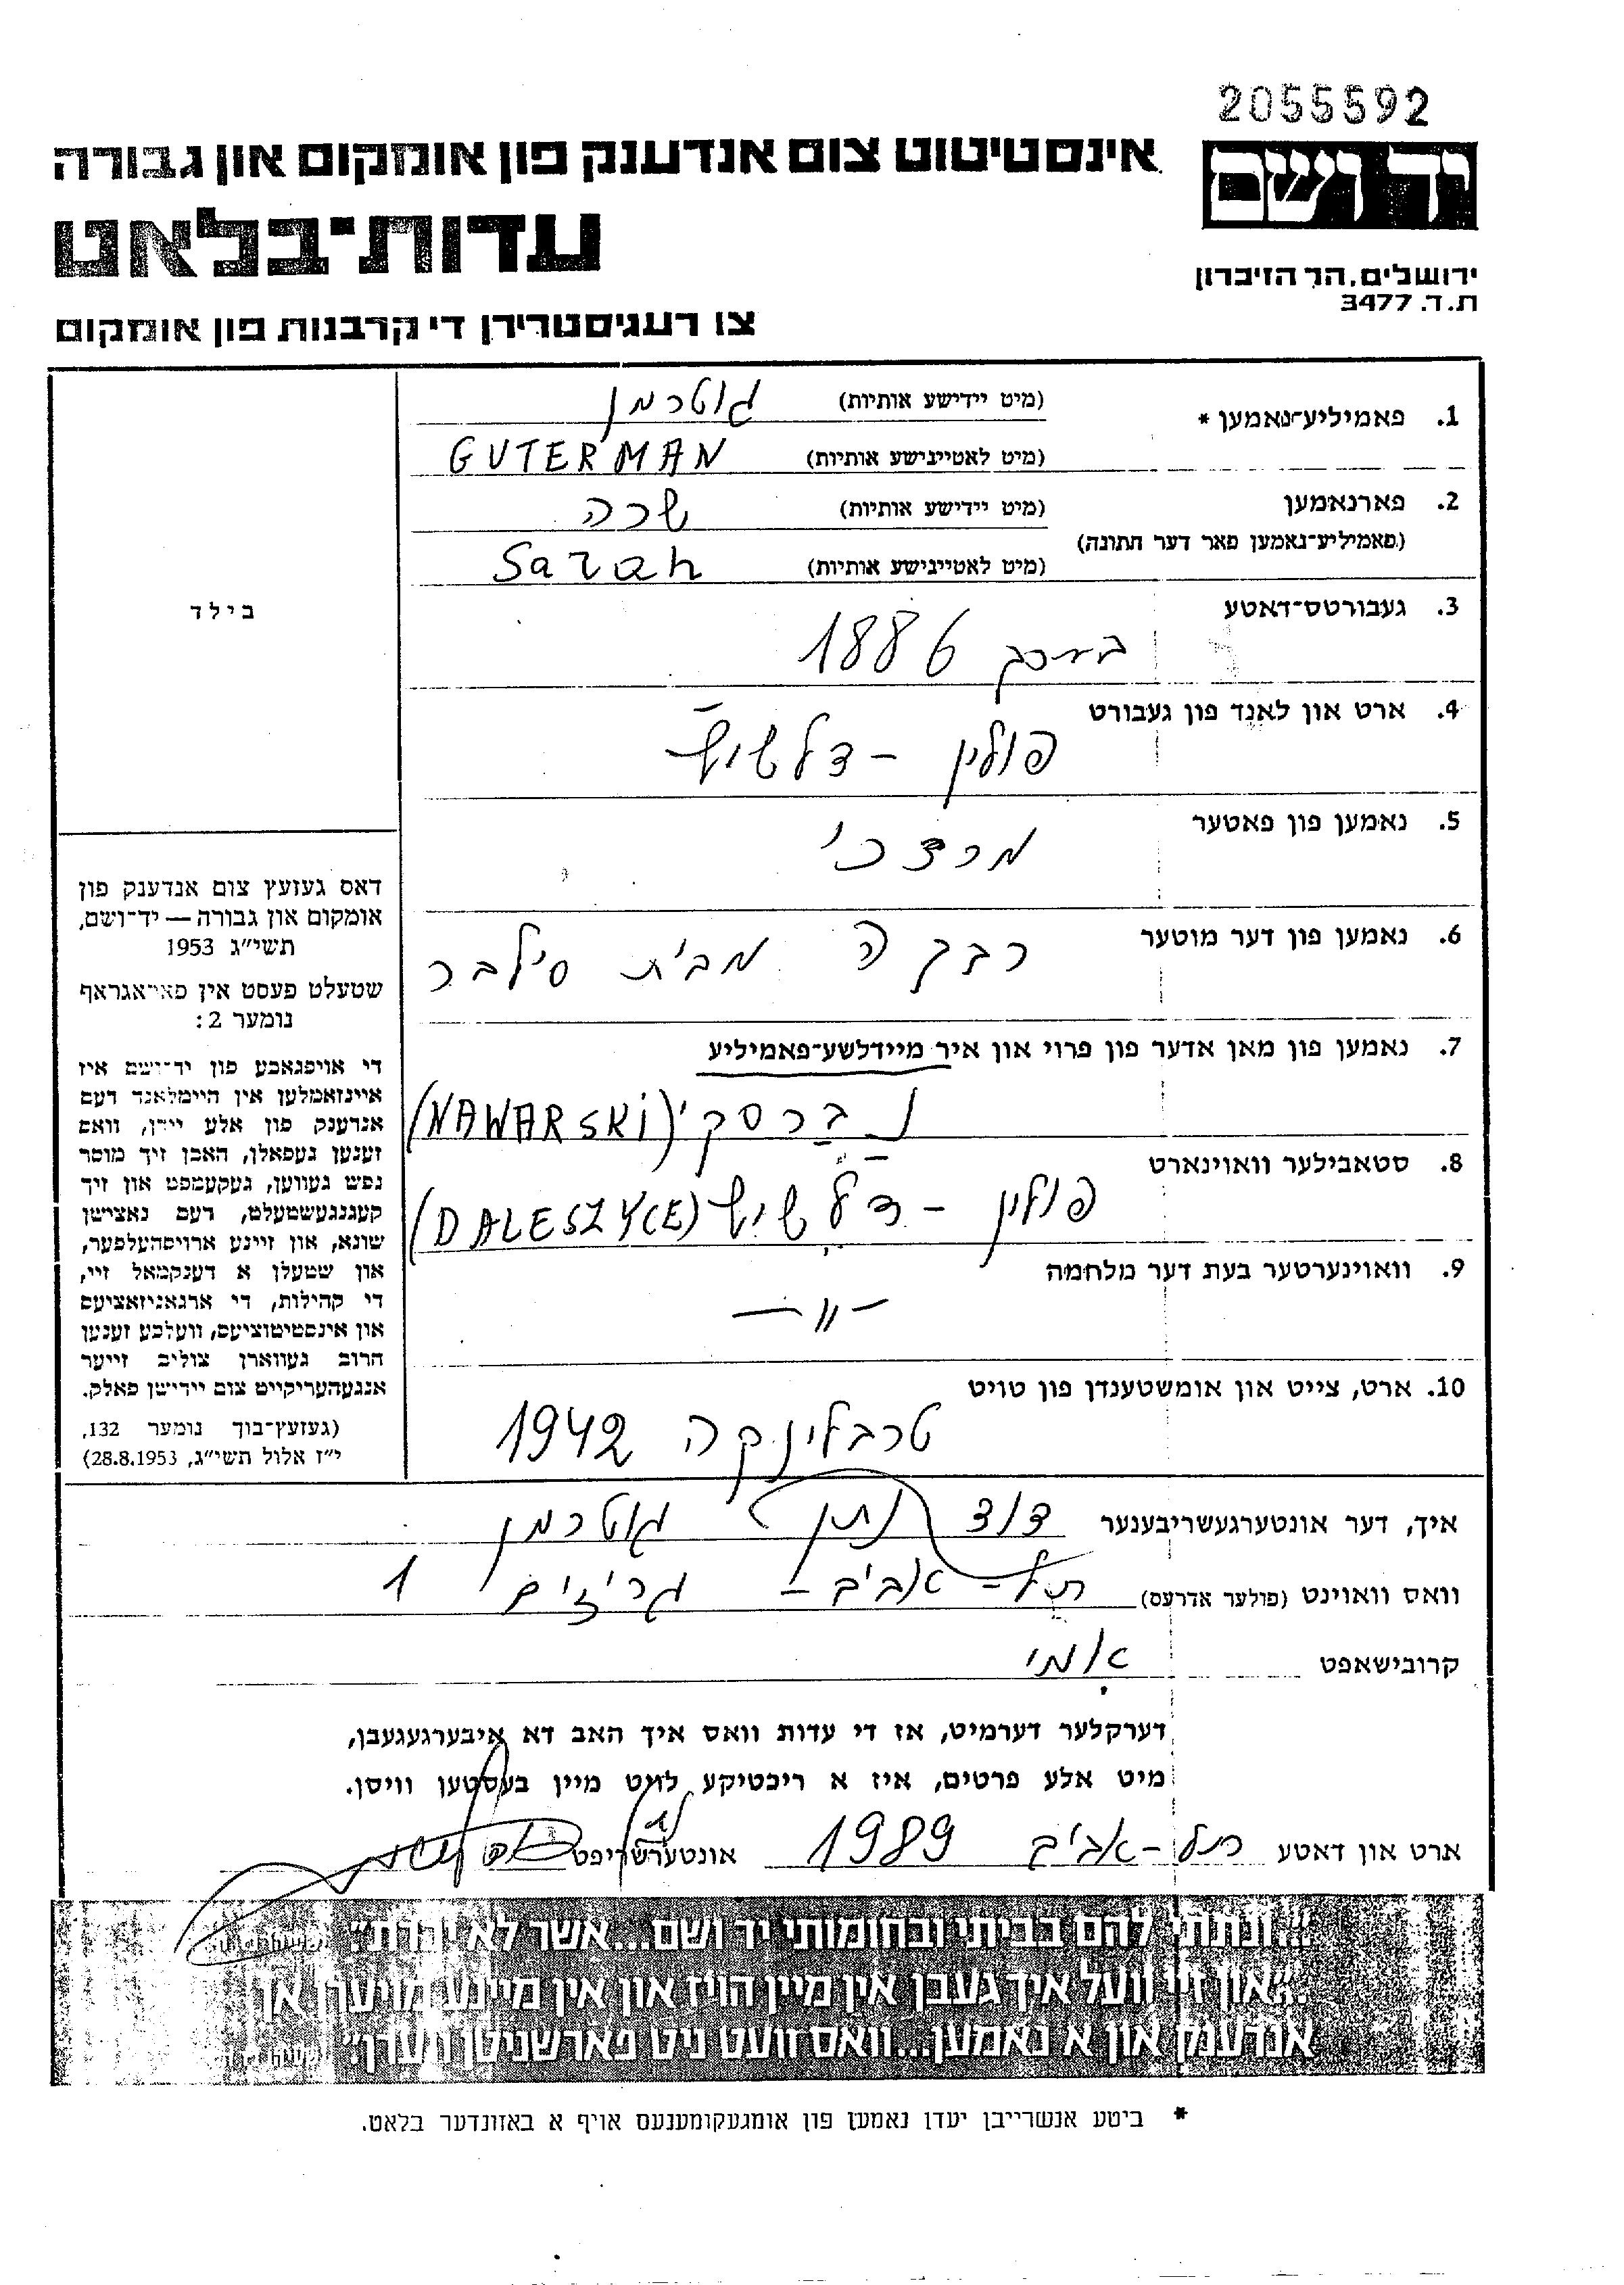 2055592
יד ושם
ירושלים, הר הזיכרון
ת.ד. 3477
אינסטיטוט צום אנדענק פון אומקום און גבורה
עדות-בלאט
צו רעגיסטרירן די קרבנות פון אומקום
1. פאמיליע־נאמען * (מיט יידישע אותיות) גוטרמן
(מיט לאטיינישע אותיות) GUTERMAN
2. פארנאמען (מיט יידישע אותיות) שרה
(פאמיליע־נאמען פאר דער חתונה)
(מיט לאטיינישע אותיות) Sarah
3. געבורטס־דאטע
בערך 1886
4. ארט און לאנד פון געבורט
פולין - דלשיץ
5. נאמען פון פאטער
מרדכי
6. נאמען פון דער מוטער
רבקה מבית סילבר
7. נאמען פון מאן אדער פון פרוי און איר מיידלשע־פאמיליע
נברסקי (NAWARSKI)
8. סטאבילער וואוינארט
פולין - דלשיץ (DALESZYCE)
9. וואוינערטער בעת דער מלחמה
— 〃 —
10. ארט, צייט און אומשטענדן פון טויט
טרבלינקה 1942
בילד
דאס געזעץ צום אנדענק פון
אומקום און גבורה — יד־ושם,
תשי״ג 1953
שטעלט פעסט אין פאראגראף
נומער 2:
די אויפגאבע פון יד־ושם איז
איינזאמלען אין היימלאנד דעם
אנדענק פון אלע יידן, וואס
זענען געפאלן, האבן זיך מוסר
נפש געווען, געקעמפט און זיך
קעגנגעשטעלט, דעם נאצישן
שונא, און זיינע ארויסהעלפער,
און שטעלן א דענקמאל זיי,
די קהילות, די ארגאניזאציעס
און אינסטיטוציעס, וועלכע זענען
חרוב געווארן צוליב זייער
אנגעהעריקייט צום יידישן פאלק.
(געזעץ־בוך נומער 132,
י״ז אלול תשי״ג, 28.8.1953)
איך, דער אונטערגעשריבענער דוד נתן גוטרמן
וואס וואוינט (פולער אדרעס) תל-אביב - גריזים 1
קרובישאפט אמי
דערקלער דערמיט, אז די עדות וואס איך האב דא איבערגעגעבן,
מיט אלע פרטים, איז א ריכטיקע לויט מיין בעסטען וויסן.
ארט און דאטע תל-אביב 1989 אונטערשריפט
״...ונתתי להם בביתי ובחומותי יד ושם... אשר לא יכרת״.
״...און זיי וועל איך געבן אין מיין הויז און אין מיינע מויערן אן
אנדענק און א נאמען... וואס וועט ניט פארשניטן ווערן״.
* ביטע אנשרייבן יעדן נאמען פון אומגעקומענעם אויף א באזונדער בלאט.